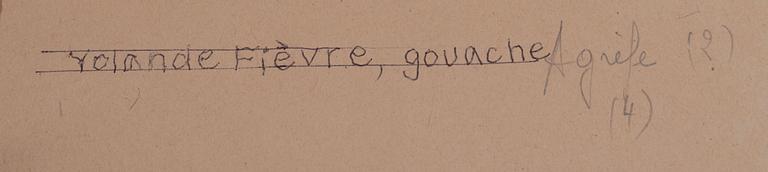 Yolande Fièvre, gouache Agrèfe (?)
(4)